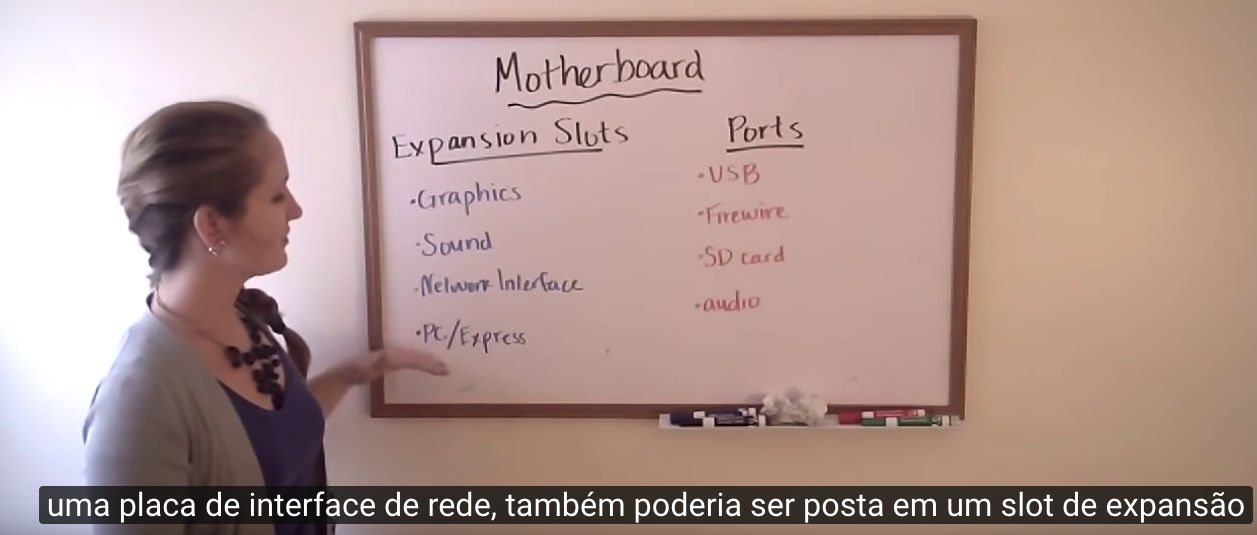 Motherboard
Expansion Slots
•Graphics
•Sound
•Network Interface
•PC/Express
Ports
•USB
•Firewire
•SD card
•audio
uma placa de interface de rede, também poderia ser posta em um slot de expansão